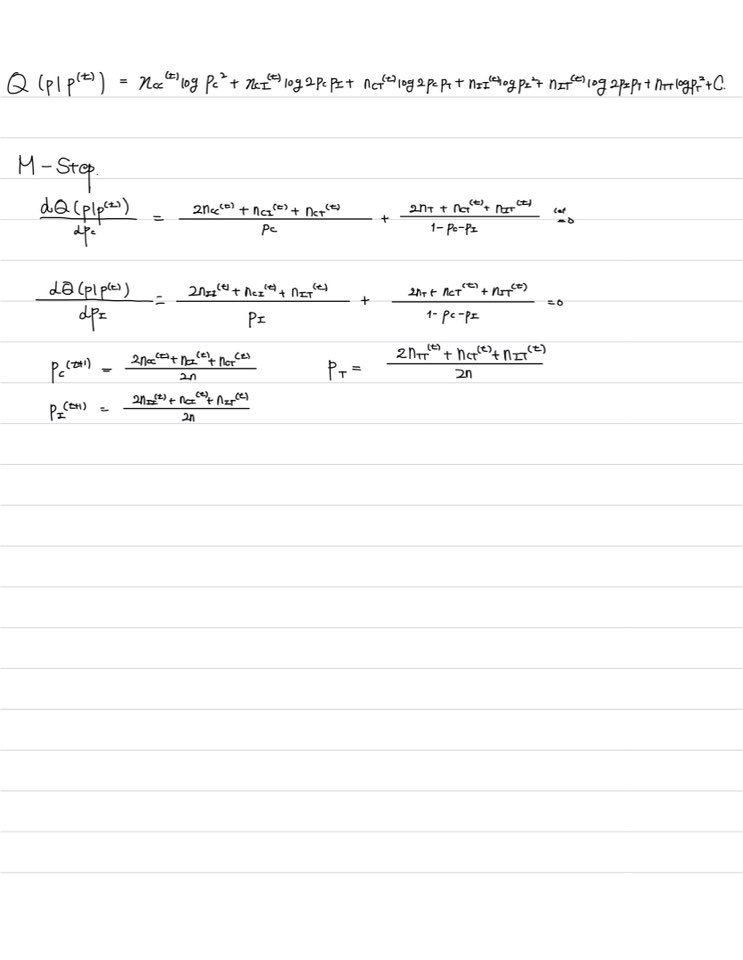 Q (p|p^(t)) = n_CC^(t) log p_C^2 + n_CI^(t) log 2p_C p_I + n_CT^(t) log 2p_C p_T + n_II^(t) log p_I^2 + n_IT^(t) log 2p_I p_T + n_TT log p_T^2 + C.
M-Step.
dQ(p|p^(t)) / dp_C = (2n_CC^(t) + n_CI^(t) + n_CT^(t)) / p_C + (2n_T + n_CT^(t) + n_IT^(t)) / (1-p_C-p_I) let = 0
dQ(p|p^(t)) / dp_I = (2n_II^(t) + n_CI^(t) + n_IT^(t)) / p_I + (2n_T + n_CT^(t) + n_IT^(t)) / (1-p_C-p_I) = 0
p_C^(t+1) = (2n_CC^(t) + n_I^(t) + n_CT^(t)) / 2n p_T = (2n_TT^(t) + n_CT^(t) + n_IT^(t)) / 2n
p_I^(t+1) = (2n_II^(t) + n_CI^(t) + n_IT^(t)) / 2n